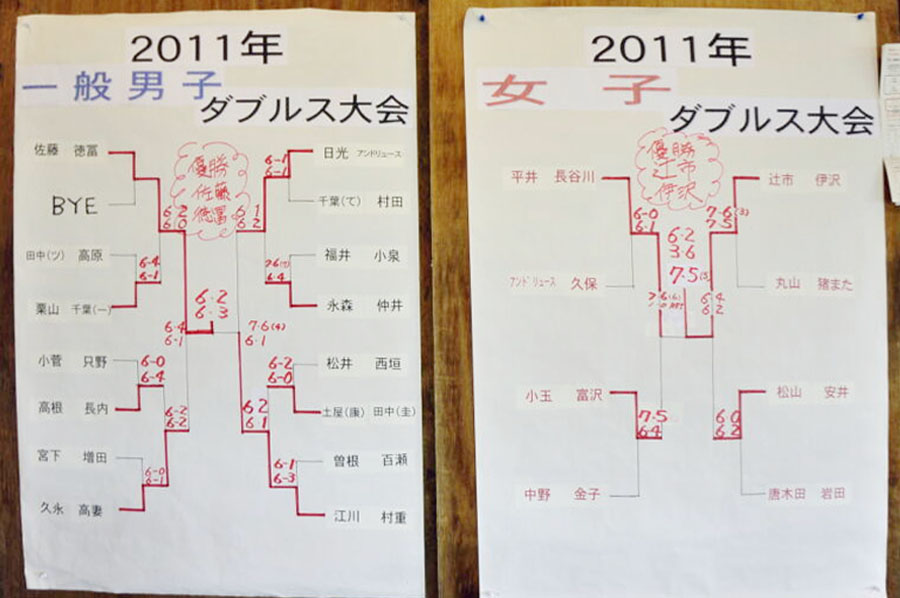 2011年
一般男子
ダブルス大会
優勝
佐藤
徳冨
佐藤 徳冨
BYE
6 2
6 0
田中(ツ) 高原
6-4
6-1
栗山 千葉(一)
6-4
6-1
小菅 只野
6-0
6-4
高根 長内
6-2
6-2
宮下 増田
6-0
6-1
久永 高妻
6.2
6.3
日光 アンドリュース
6-1
6-1
千葉(て) 村田
6 1
6 2
福井 小泉
7-6(7)
6-4
永森 仲井
7-6(4)
6-1
松井 西垣
6-2
6-0
土屋(康) 田中(圭)
6 2
6 1
曽根 百瀬
6-1
6-3
江川 村重
2011年
女子
ダブルス大会
優勝
辻市
伊沢
平井 長谷川
6-0
6-1
アンドリュース 久保
小玉 富沢
7-5
6-4
中野 金子
6.2
3.6
7-5(5)
辻市 伊沢
7-6(3)
7-5
丸山 猪また
6-4
6-2
松山 安井
6 0
6 2
唐木田 岩田